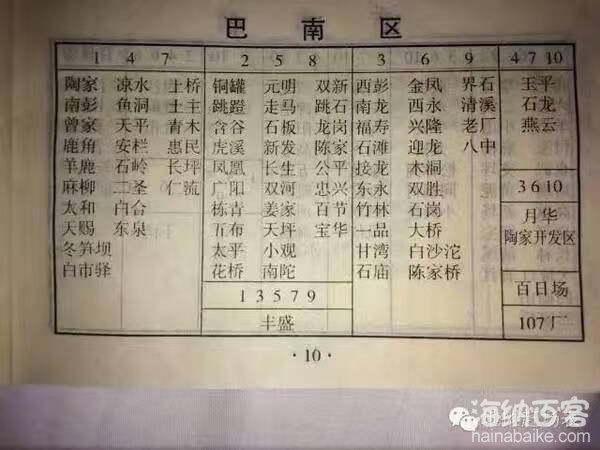 巴南区
1 4 7 2 5 8 3 6 9 4 7 10
陶家 凉水 土桥 铜罐 元明 双新 西彭 金凤 界石 玉平
南彭 鱼洞 土主 跳蹬 走马 跳石 南龙 西永 清溪 石龙
曾家 天平 青木 含谷 石板 龙岗 福寿 兴隆 老厂 燕云
鹿角 安栏 惠民 虎溪 新发 陈家 石滩 迎龙 八中
羊鹿 石岭 长坪 凤凰 长生 公平 接龙 木洞
麻柳 二圣 仁流 广阳 双河 忠兴 东永 双胜 3 6 10
太和 白合 栋青 姜家 百节 竹林 石岗 月华
天赐 东泉 五布 天坪 宝华 一品 大桥 陶家开发区
冬笋坝 太平 小观 甘湾 白沙沱
白市驿 花桥 南陀 石庙 陈家桥 百日场
1 3 5 7 9
丰盛 107厂
·10·
海纳百客
hainabaike.com